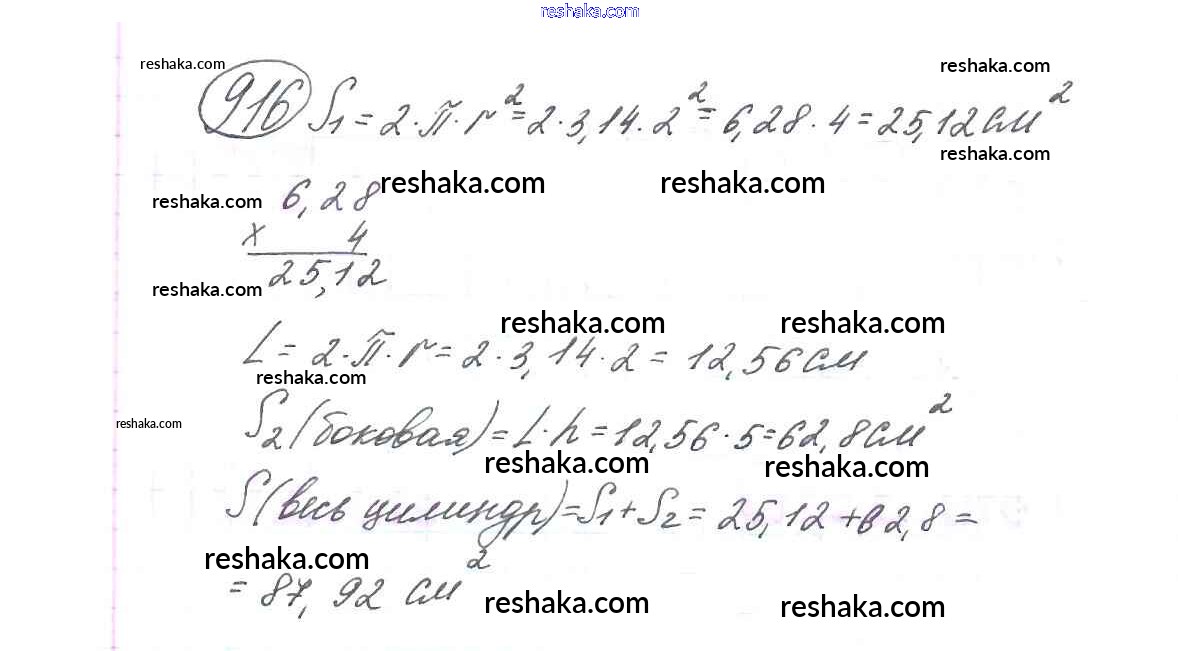 reshaka.com
reshaka.com reshaka.com
916 S₁ = 2·π·r² = 2·3,14·2² = 6,28·4 = 25,12 см²
reshaka.com
reshaka.com reshaka.com
reshaka.com 6,28
× 4
25,12
reshaka.com
reshaka.com reshaka.com
L = 2·π·r = 2·3,14·2 = 12,56 см
reshaka.com
reshaka.com
S₂ (боковая) = L·h = 12,56·5 = 62,8 см²
reshaka.com reshaka.com
S (весь цилиндр) = S₁ + S₂ = 25,12 + 62,8 =
reshaka.com
= 87,92 см²
reshaka.com reshaka.com